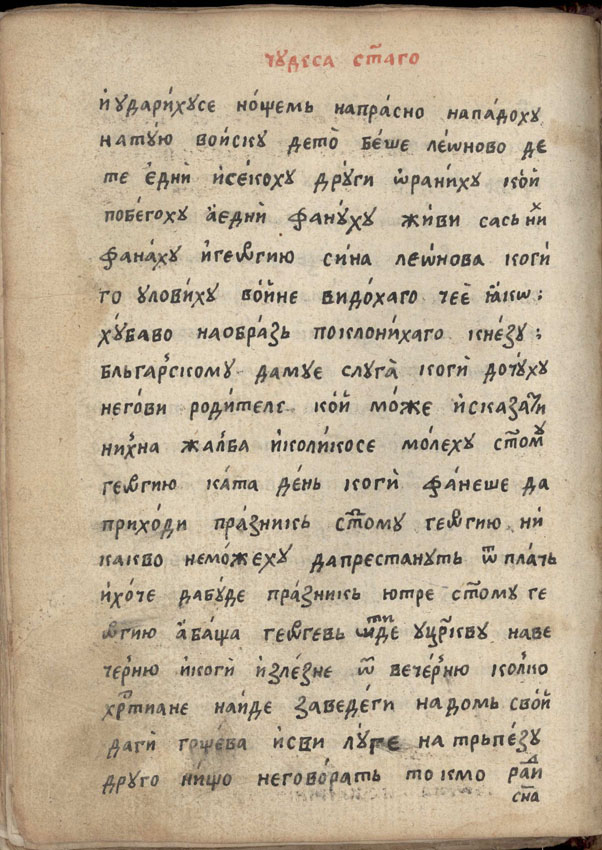 чꙋдеса ст҃аго
и҆ꙋдари́хꙋсе но́щемь напрасно напа́дохꙋ
на тꙋ́ю во́йскꙋ дето̀ бе́ше леѡ́ново де
те є҆дни̏ и҆се́кохꙋ дрꙋги ѡ҆рани́хꙋ ко́й
побе́гохꙋ а҆едни̏ фанꙋ́хꙋ живи сась ниⷯ
фана́хꙋ и҆геѡ́ргию сина леѡ́нова коги̏
го ꙋловихꙋ во́йне видо́хаго чеѐ ꙗ҆ко :
хꙋ́баво наѻбра́зь поклони́хаго кне́зꙋ :
бльга́рскомꙋ дамꙋе слꙋга̀ коги̏ дотꙋ́хꙋ
него́ви роди́теле ко́й мо́же и҆сказа́ти
ни́хна жа́лба и҆коли́косе мо́лехꙋ ст҃омꙋ
геѡ́ргию ка́та де́нь коги̏ фа́неше да
прихо́ди пра́зникь ст҃омꙋ геѡ́ргию ни
ка́кво немо́жехꙋ дапреста́нꙋть ѿ пла́чь
и҆хо́че дабꙋ́де пра́зникь ю҆тре ст҃омꙋ ге
ѡ́ргию а҆ба́ща геѡ́ргевь ѿиде ꙋцр҃квꙋ на ве
че́рню и҆коги̏ и҆зле́зне ѿ вече́рню ко́лко
хрⷭ҇тиане на́йде заведе́ги надомь сво́й
даги̏ гоще́ва и҆сви лꙋ́ге на трьпе́зꙋ
дрꙋго ни́що него́во́рать токмо раⷣи
сн҃а